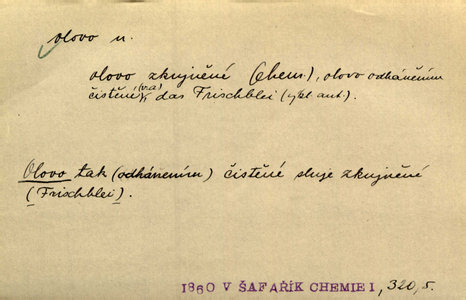 olovo n.
olovo zkujněné (chem.), olovo odháněním
čistěné (v.a) das Frischblei (
Olovo tak (odháněním) čistěné sluje zkujněné
(Frischblei).
1860 V ŠAFAŘÍK CHEMIE I, 320, 5.